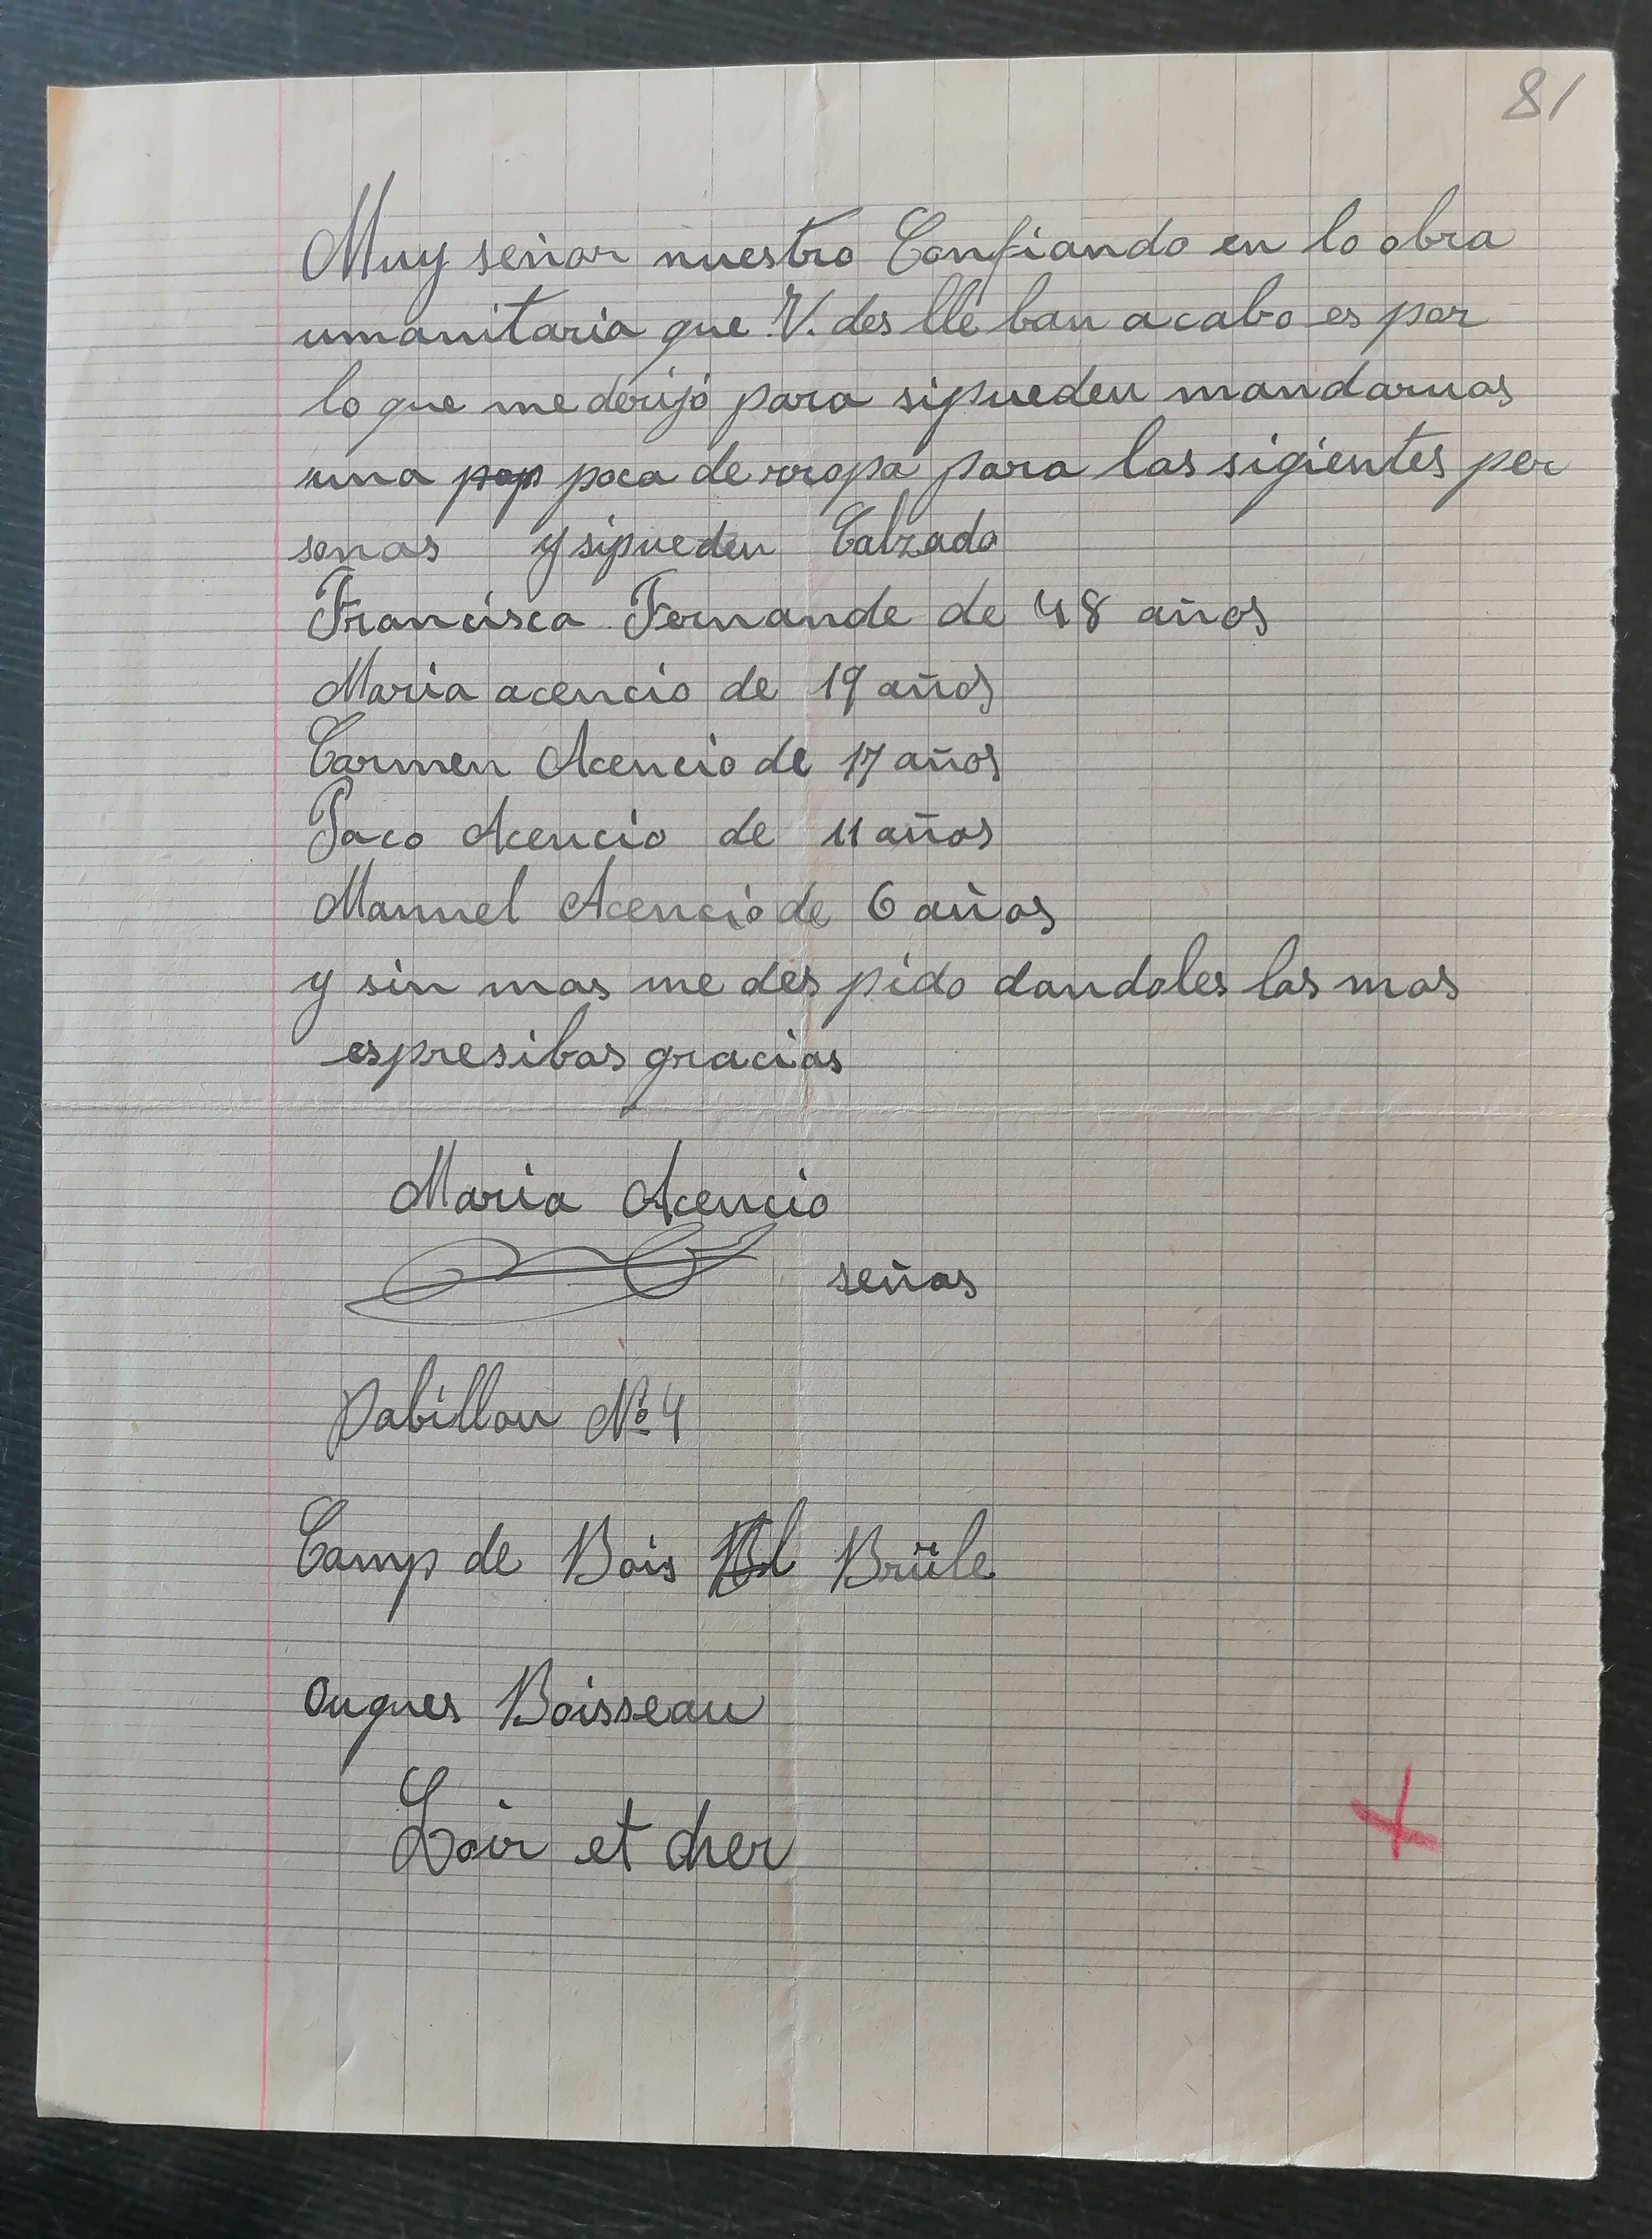 81
Muy señor nuestro Confiando en lo obra
umanitaria que V. des lle ban acabo es por
lo que me dirijo para sipueden mandarnos
una poca de rropa para las sigientes per
sonas y sipueden Calzado
Francisca Fernande de 48 años
Maria acencio de 19 años
Carmen Acencio de 17 años
Paco Acencio de 11 años
Manuel Acencio de 6 años
y sin mas me des pido dandoles las mas
espresibas gracias
Maria Acencio
señas
Pabillon Nº 4
Camp de Bois Brüle
ougues Boisseau
Loir et cher